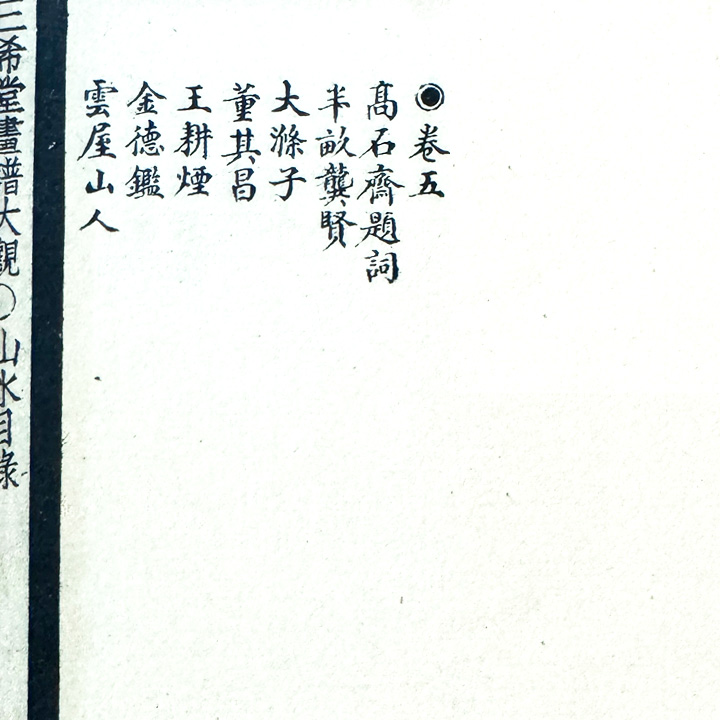 ◉卷五
高石齋題詞
半畝龔賢
大滌子
董其昌
王耕煙
金德鑑
雲屋山人
三希堂畫譜大觀〇山水目錄